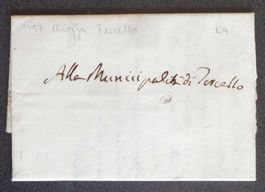 1797 Chioggia - Torcello
Alla Municipalità di Torcello